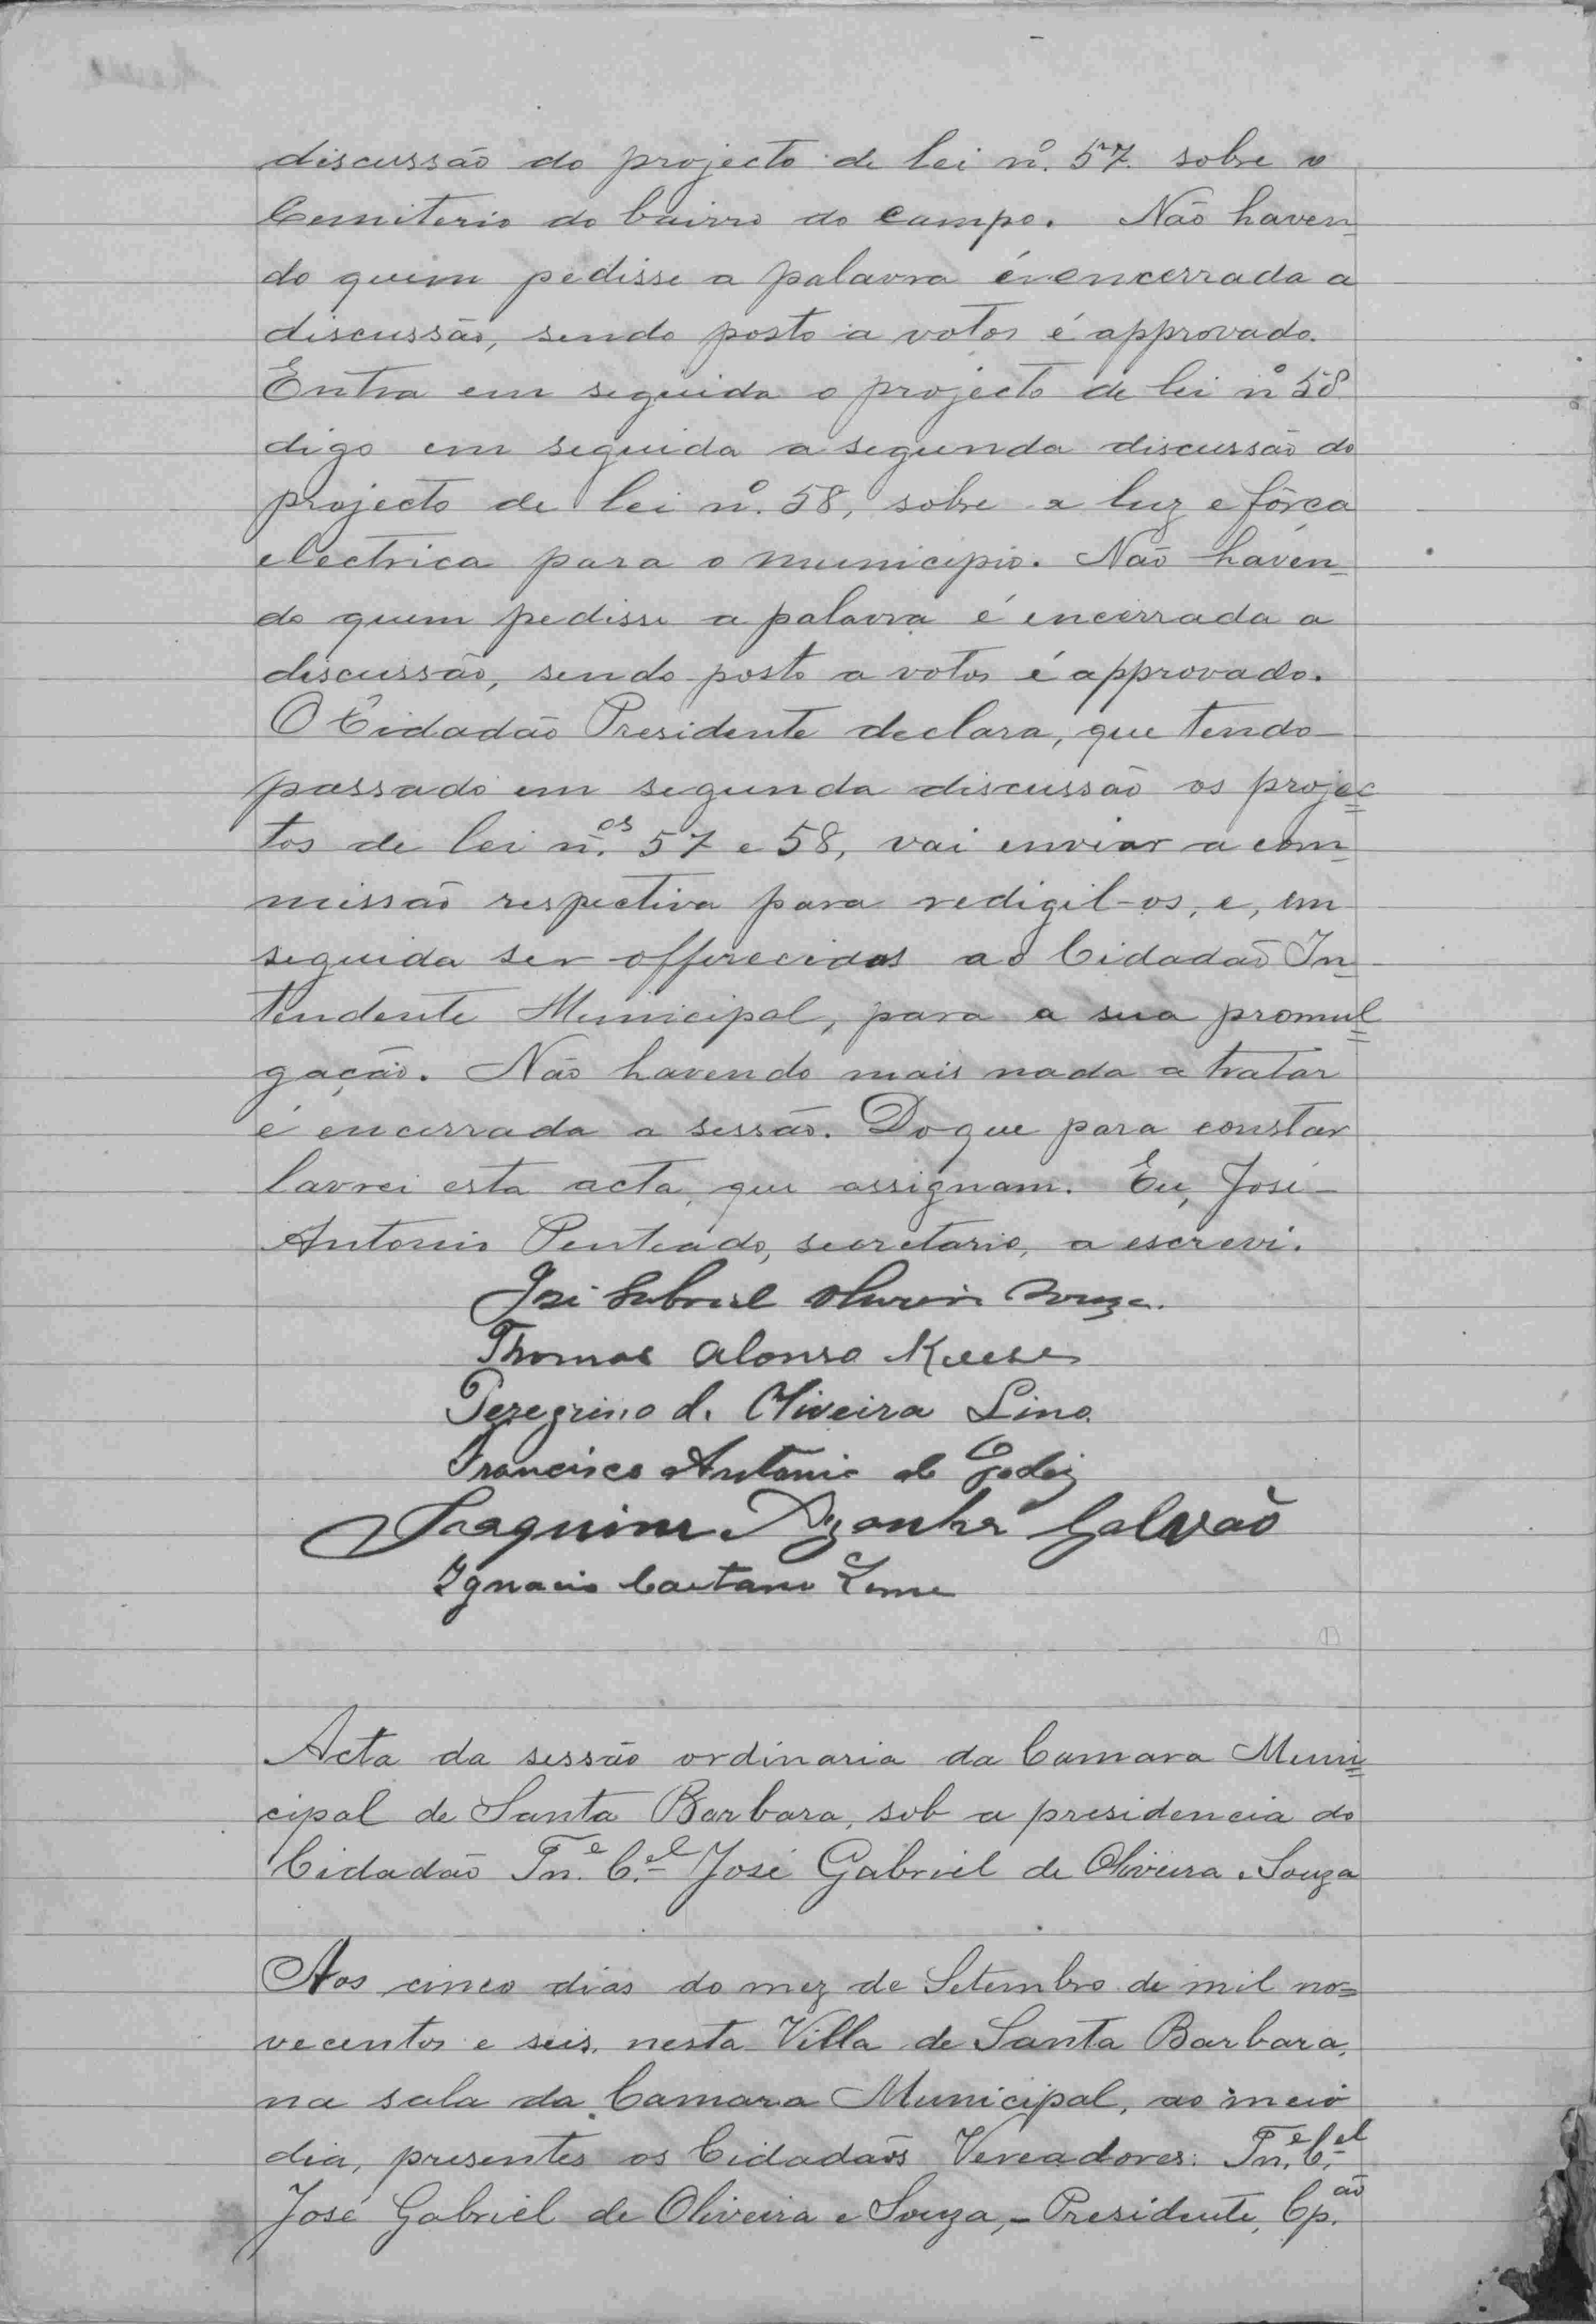 discussão do projecto de lei nº. 57. sobre o
Cemiterio do bairro do Campo. Não haven-
do quem pedisse a palavra é encerrada a
discussão, sendo posto a votos é approvado.
Entra em seguida o projecto de lei nº 58
digo em seguida a segunda discussão do
projecto de lei nº. 58, sobre a luz e fôrça
electrica para o municipio. Não haven-
do quem pedisse a palavra é encerrada a
discussão, sendo posto a votos é approvado.
O Cidadão Presidente declara, que tendo
passado em segunda discussão os projec=
tos de lei n.os 57 e 58, vai enviar a com-
missão respectiva para redigil-os, e, em
seguida ser offerecidos ao Cidadão In-
tendente Municipal, para a sua promul=
gação. Não havendo mais nada a tratar
é encerrada a sessão. Do que para constar
lavrei esta acta, que assignam. Eu, José
Antonio Penteado, secretario, a escrevi.
José Gabriel Oliveira Souza.
Thomas Alonso Keese
Peregrino d. Oliveira Lino.
Francisco Antonio de Godoy
Joaquim Azanha Galvão
Ignacio Caetano Leme
Acta da sessão ordinaria da Camara Muni=
cipal de Santa Barbara, sob a presidencia do
Cidadão Tn.e C.el José Gabriel de Oliveira e Souza
Aos cinco dias do mez de Setembro de mil no=
vecentos e seis, nesta Villa de Santa Barbara,
na sala da Camara Municipal, ao meio
dia, presentes os Cidadãos Vereadores: Tn.e C.el
José Gabriel de Oliveira e Souza, - Presidente, Cp.ão